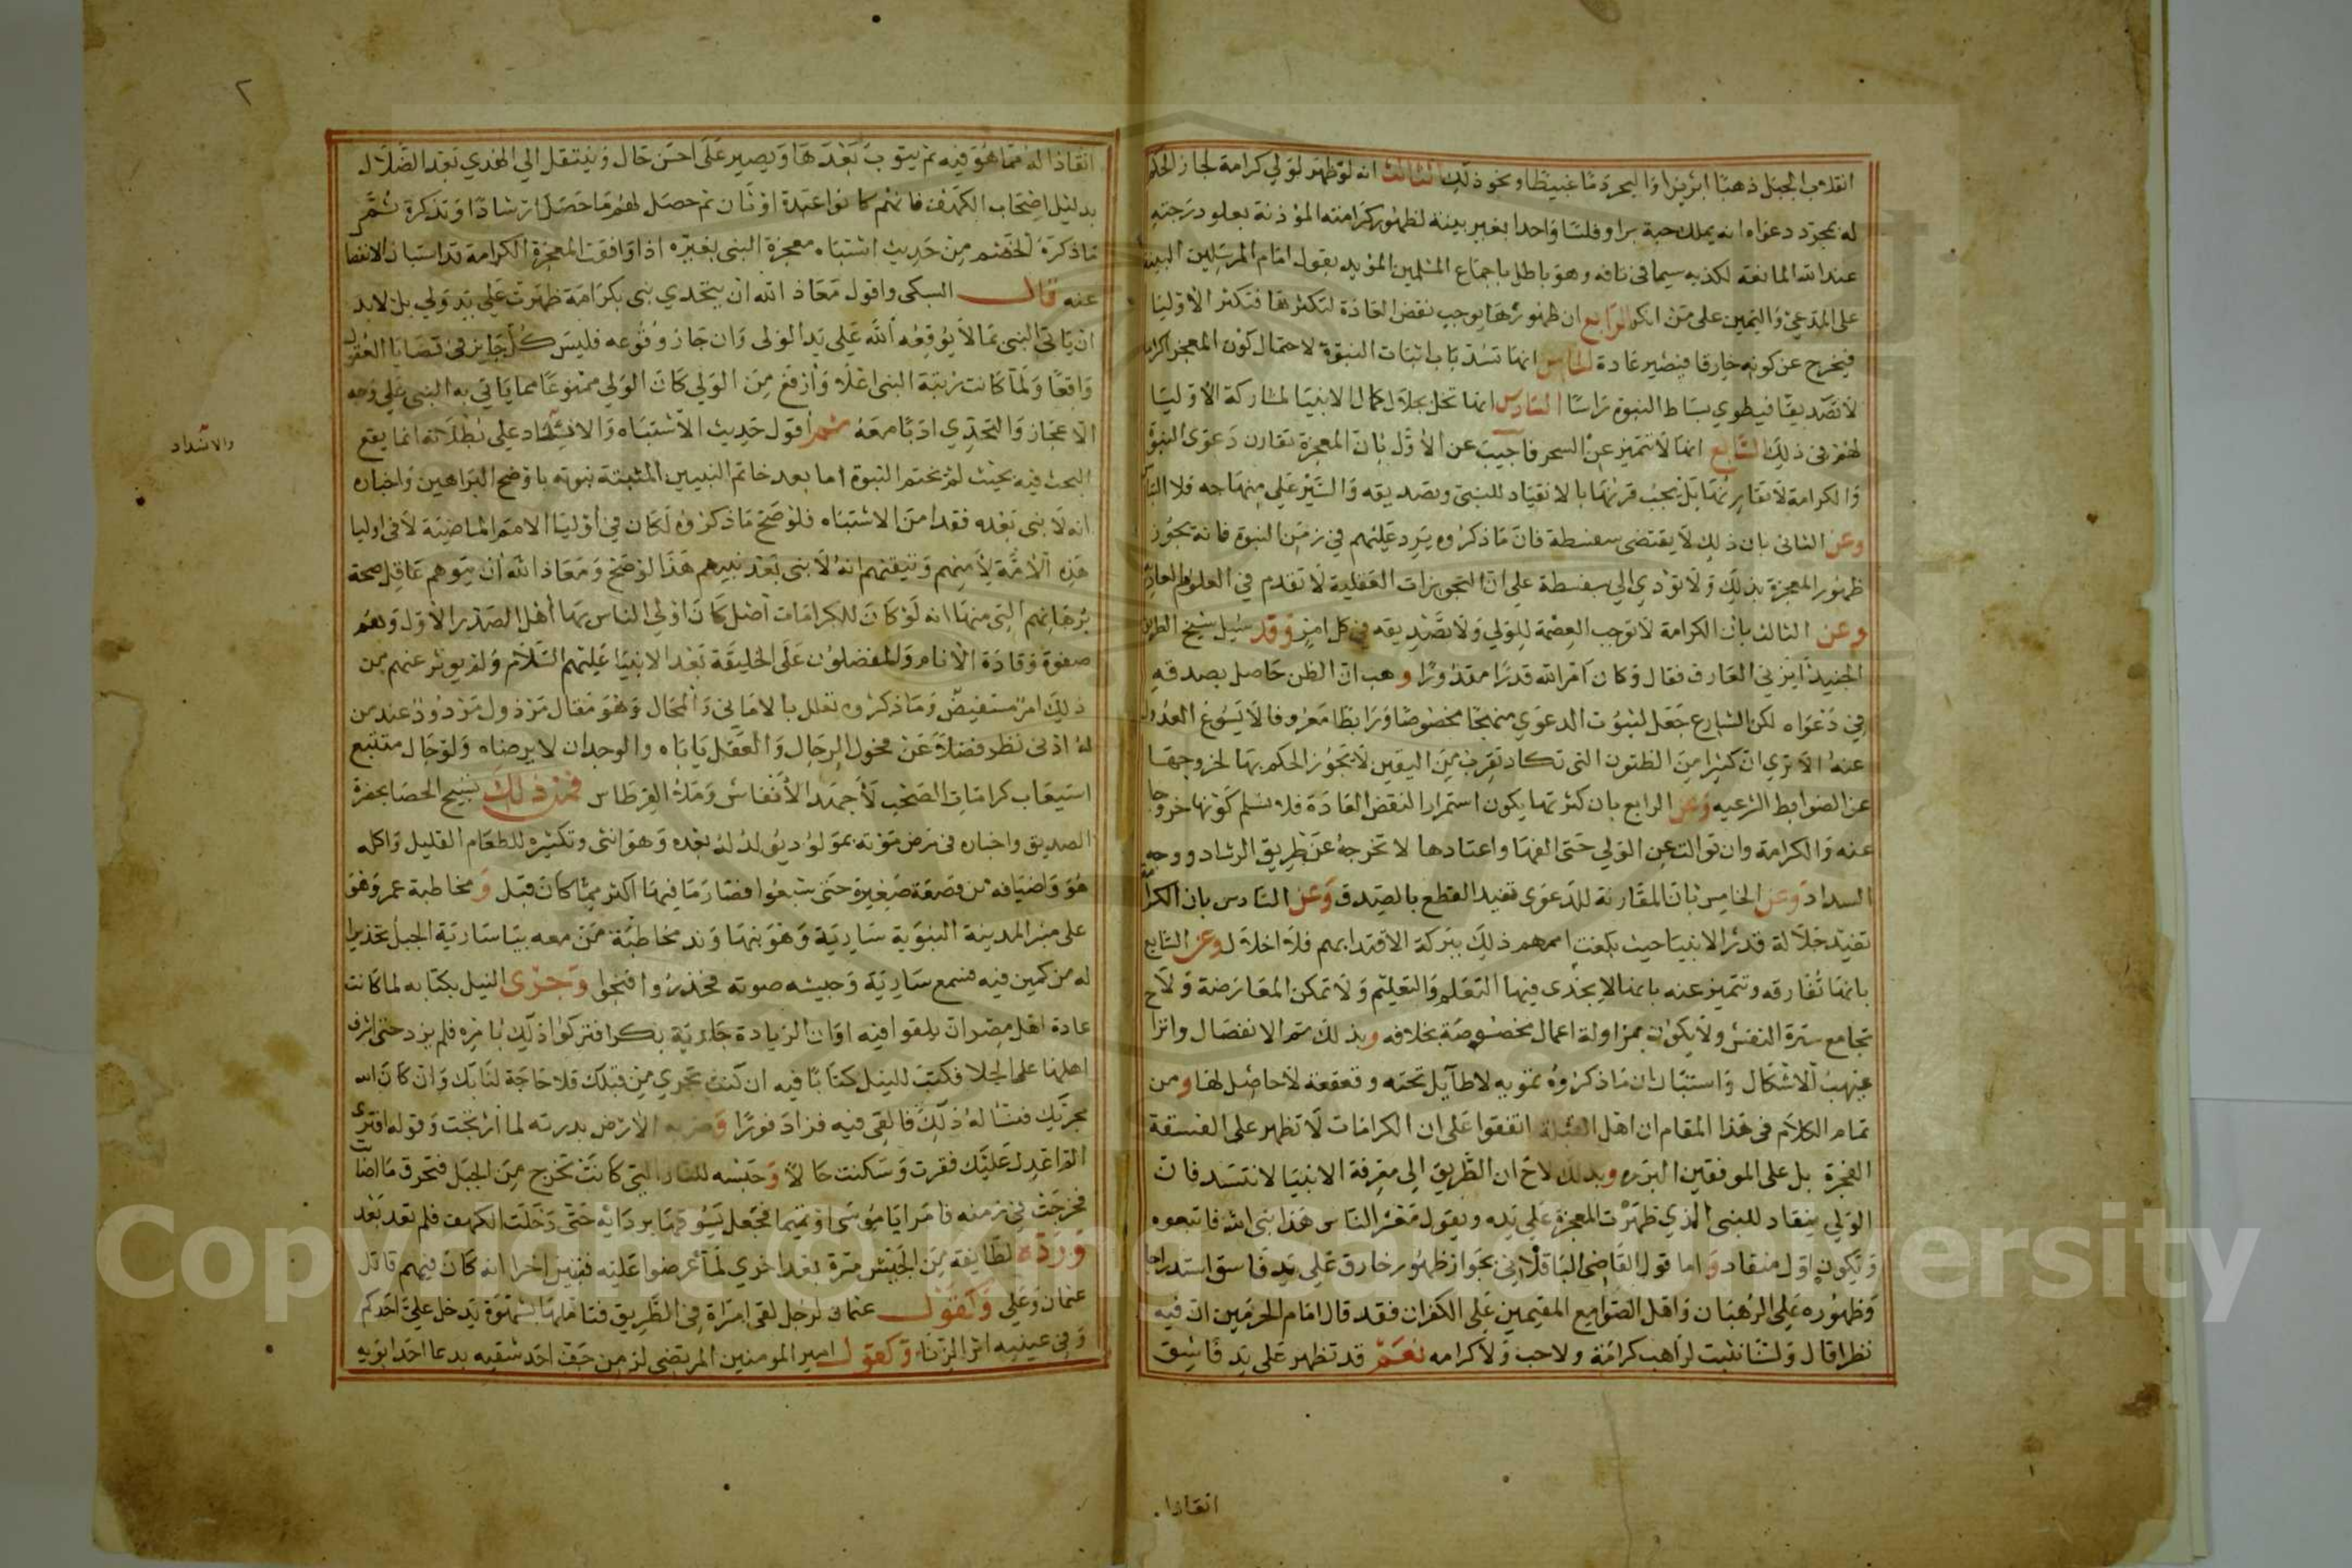 انقلاب الجبل ذهبا ابريزا او البحر دما عبيطا ونحو ذلك الثالث انه لو ظهر لولي كرامة لجاز الحكم
له بمجرد دعواه انه يملك حبة بر او فلسا واحدا بغير بينة لظهور كرامته المؤذنة بعلو درجته
عند الله المانعة لكذبه سيما في تافه وهو باطل باجماع المسلمين المؤيد بقول امام المرسلين البينة
على المدعي واليمين على من انكر الرابع ان ظهورها يوجب نقض العادة لتكثرها فتكثر الاوليا
فيخرج عن كونه خارقا فيصير عادة الخامس انها تسد باب اثبات النبوة لاحتمال كون المعجز اكراما
لا تصديقا فيطوي بساط النبوة راسا السادس انها تخل بجلال كمال الانبيا لمشاركة الاوليا
لهم في ذلك السابع انها لا تتميز عن السحر فاجيب عن الاول بان المعجزة تقارن دعوى النبوة
والكرامة لا تقارنها بل يجب قرنها بالانقياد للنبي وتصديقه والسير على منهاجه فلا
وعن الثاني بان ذلك لا يقتضي سفسطة فان ما ذكروه يرد عليهم في زمن النبوة فانه يجوز
ظهور المعجزة بذلك ولا تؤدي الي سفسطة علي ان التجويزات العقلية لا تقدم في العلوم العادية
وعن الثالث بان الكرامة لا توجب العصمة للولي ولا تصديقه في كل امر وقد سئيل شيخ الطريق
الجنيد ايزني العارف فقال وكان امر الله قدرا مقدورا وهب ان الظن حاصل بصدقه
في دعواه لكن الشارع جعل لثبوت الدعوي منهجا مخصوصا ورابطا معروفا لا يسوغ العدول
عنه الا تري ان كثيرا من الظنون التي تكاد تقرب من اليقين لا يجوز الحكم بها لخروجها
عن الضوابط الشرعيه وعن الرابع بان كثرتها يكون استمرار النقض العادة فلا نسلم كونها خروجا
عنه والكرامة وان توالت عن الولي حتى الفها واعتادها لا تخرجه عن طريق الرشاد ووجه
السداد وعن الخامس بان المقارنة للدعوى تفيد القطع بالصدق وعن السادس بان الكرامة
تفيد جلالة قدر الانبيا حيث بلغت اممهم ذلك ببركة الاقتدا بهم فلا اخلال وعن السابع
بانها تفارقه وتتميز عنه بانها لا يجدى فيها التعلم والتعليم ولا تمكن المعارضة ولا
تجامع شرة النفس ولا يكون بمزاولة اعمال مخصوصة بخلافه وبذلك تم الانفصال وانزاح
غيهب الاشكال واستبان ان ما ذكروه تمويه لا طايل تحته وقعقعة لا حاصل لها ومن
تمام الكلام في هذا المقام ان اهل القبلة اتفقوا على ان الكرامات لا تظهر على الفسقة
الفجرة بل على الموفقين البرره وبذلك لاح ان الطريق الي معرفة الانبيا لا تنسد فان
الولي ينقاد للنبي الذي ظهرت المعجزة علي يده ويقول معشر الناس هذا نبي الله فاتبعوه
ويكون اول منقاد واما قول القاضي الباقلاني بجواز ظهور خارق علي يد فاسق استدراجا
وظهوره علي الرهبان واهل الصوامع المقيمين على الكفران فقد قال امام الحرمين ان فيه
نظرا قال ولسنا نثبت لراهب كرامة ولا حب ولا كرامه نعم قد تظهر على يد فاسق
انقاذا
٢
انقاذا له مما هو فيه ثم يتوب بعدها ويصير على احسن حال وينتقل الي الهدي بعد الضلال
بدليل اصحاب الكهف فانهم كانوا عبدة اوثان ثم حصل لهم ما حصل ارشادا وتذكرة ثم
ما ذكره الخصم من حديث اشتباه معجزة النبي بغيره اذا وافقت المعجزة الكرامة قد استبان الانفصال
عنه قال السبكي واقول معاذ الله ان يتحدي نبي بكرامة ظهرت على يد ولي بل لا بد
ان ياتي النبي بما لا يوقعه الله على يد الولي وان جاز وقوعه فليس كل جايز في قضايا العقول
واقعا ولما كانت رتبة النبي اعلا وارفع من الولي كان الولي ممنوعا مما ياتي به النبي على وجه
الاعجاز والتحدي ادبا معه ثم اقول حديث الاشتباه والانسداد على بطلانه انما يقع
البحث فيه بحيث لم تختم النبوة اما بعد خاتم النبيين المثبتة نبوته باوضح البراهين واخباره
انه لا نبي بعده فقد امن الاشتباه فلو صح ما ذكروه لكان في اوليا الامم الماضية لا في اوليا
هذه الامة لامنهم وتيقنهم انه لا نبي بعد نبيهم هذا لو صح ومعاذ الله ان يتوهم عاقل صحة
برهانهم التي منها انه لو كان للكرامات اصل كان اولي الناس بها اهل الصدر الاول وهم
صفوة وقادة الانام والمفضلون على الخليقة بعد الانبيا عليهم السلام ولم يوثر عنهم من
ذلك امر مستفيض وما ذكروه تعلل بالاماني والمحال وهو مقال مرذول مردود عند من
له ادنى نظر فضلا عن فحول الرجال والعقل ياباه والوجدان لا يرضاه ولو حال متتبع
استيعاب كرامات الصحب لاجهد الانفاس وملا القرطاس فمن ذلك تسبيح الحصا بحضرة
الصديق واخباره في مرض موته بمولود يولد له بعده وهو انثى وتكثيره للطعام القليل واكله
هو واضيافه من قصعة صغيرة حتى شبعوا فصار ما فيها اكثر مما كان قبل ومخاطبة عمر وهو
على منبر المدينة النبوية سارية وهو بنهاوند مخاطبة من معه بيا سارية الجبل تحذيرا
له من كمين فيه فسمع سارية وجيشه صوته فحذروا وفتحوا وجرى النيل بكتابه لما كانت
عادة اهل مصر ان يلقوا فيه اوان الزيادة جارية بكرا فتركوا ذلك بامره فلم يزد حتى اشرف
اهلها على الجلا فكتب للنيل كتابا فيه ان كنت تجري من قبلك فلا حاجة لنا بك وان كان الله
مجريك فنساله ذلك فالقى فيه فزاد فورا وضربه الارض بدرته لما ارتجت وقوله اقري
الم اعدل عليك فقرت وسكنت حالا وحبسه للنار التي كانت تخرج من الجبل فتحرق ما اصابت
فخرجت في زمنه فامر ابا موسى او تميما فجعل يسوقها بردائه حتى دخلت الكهف فلم تعد بعد
ورده لطايفة من الجيش مرة بعد اخري لما عرضوا عليه فتبين اخرا انه كان فيهم قاتل
عثمان وعلي وكقول عثمان لرجل لقي امراة في الطريق فتاملها بشهوة يدخل علي احدكم
وفي عينيه اثر الزنا وكقول امير المومنين المرتضى لزمن جف احد شقيه بدعا احد ابويه
والانسداد
Copyright © King Saud University